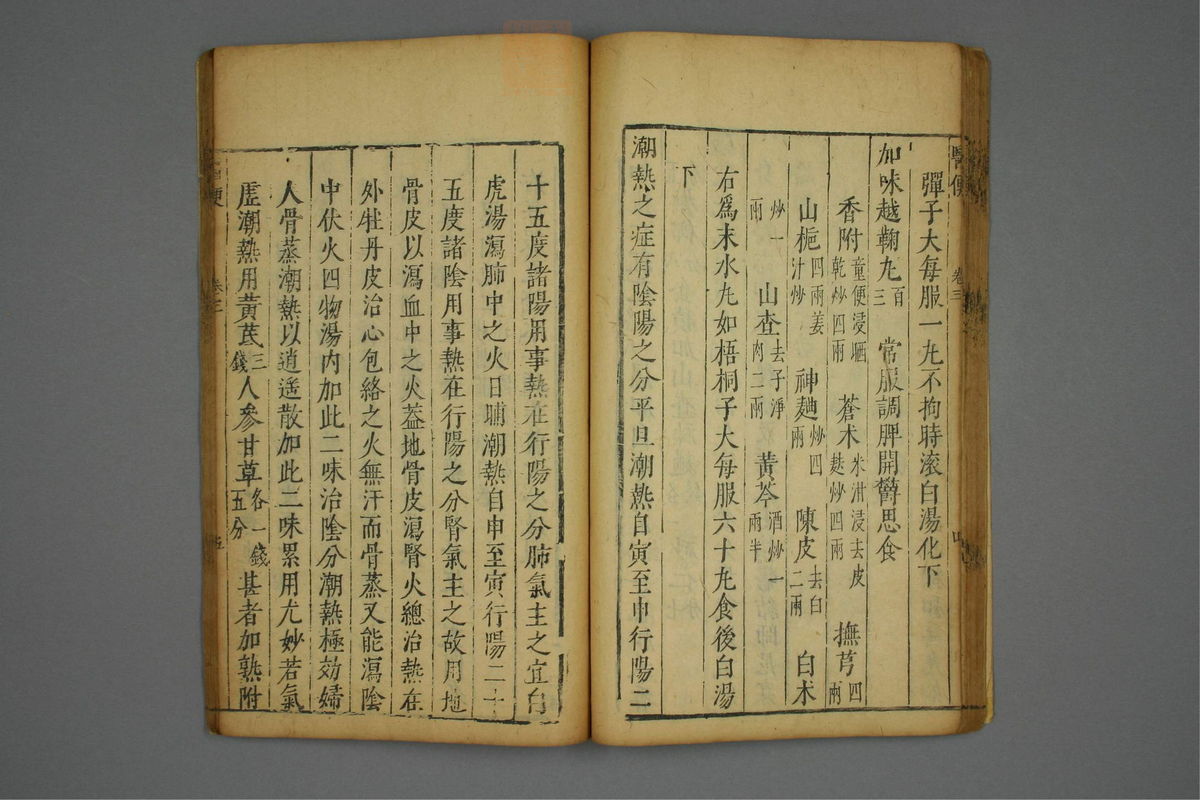 醫便 卷三
彈子大每服一九不拘時滾白湯化下
加味越鞠九百三 常服調脾開欝思食
香附童便浸晒乾炒四兩 蒼术米泔浸去皮麩炒四兩 撫芎四兩
山梔四兩姜汁炒 神麯炒四兩 陳皮去白二兩 白术
炒一兩 山查去子淨肉二兩 黄芩酒炒一兩半
右爲末水九如梧桐子大每服六十九食後白湯
下
潮熱之症有陰陽之分平旦潮熱自寅至申行陽二
十五度諸陽用事熱在行陽之分肺氣主之宜白
虎湯瀉肺中之火日晡潮熱自申至寅行陽二十
五度諸陰用事熱在行陽之分腎氣主之故用地
骨皮以瀉血中之火葢地骨皮瀉腎火總治熱在
外牡丹皮治心包絡之火無汗而骨蒸又能瀉陰
中伏火四物湯内加此二味治陰分潮熱極効婦
人骨蒸潮熱以逍遥散加此二味累用尤妙若氣
虛潮熱用黄芪三錢人參甘草各一錢五分甚者加熟附
便 卷三